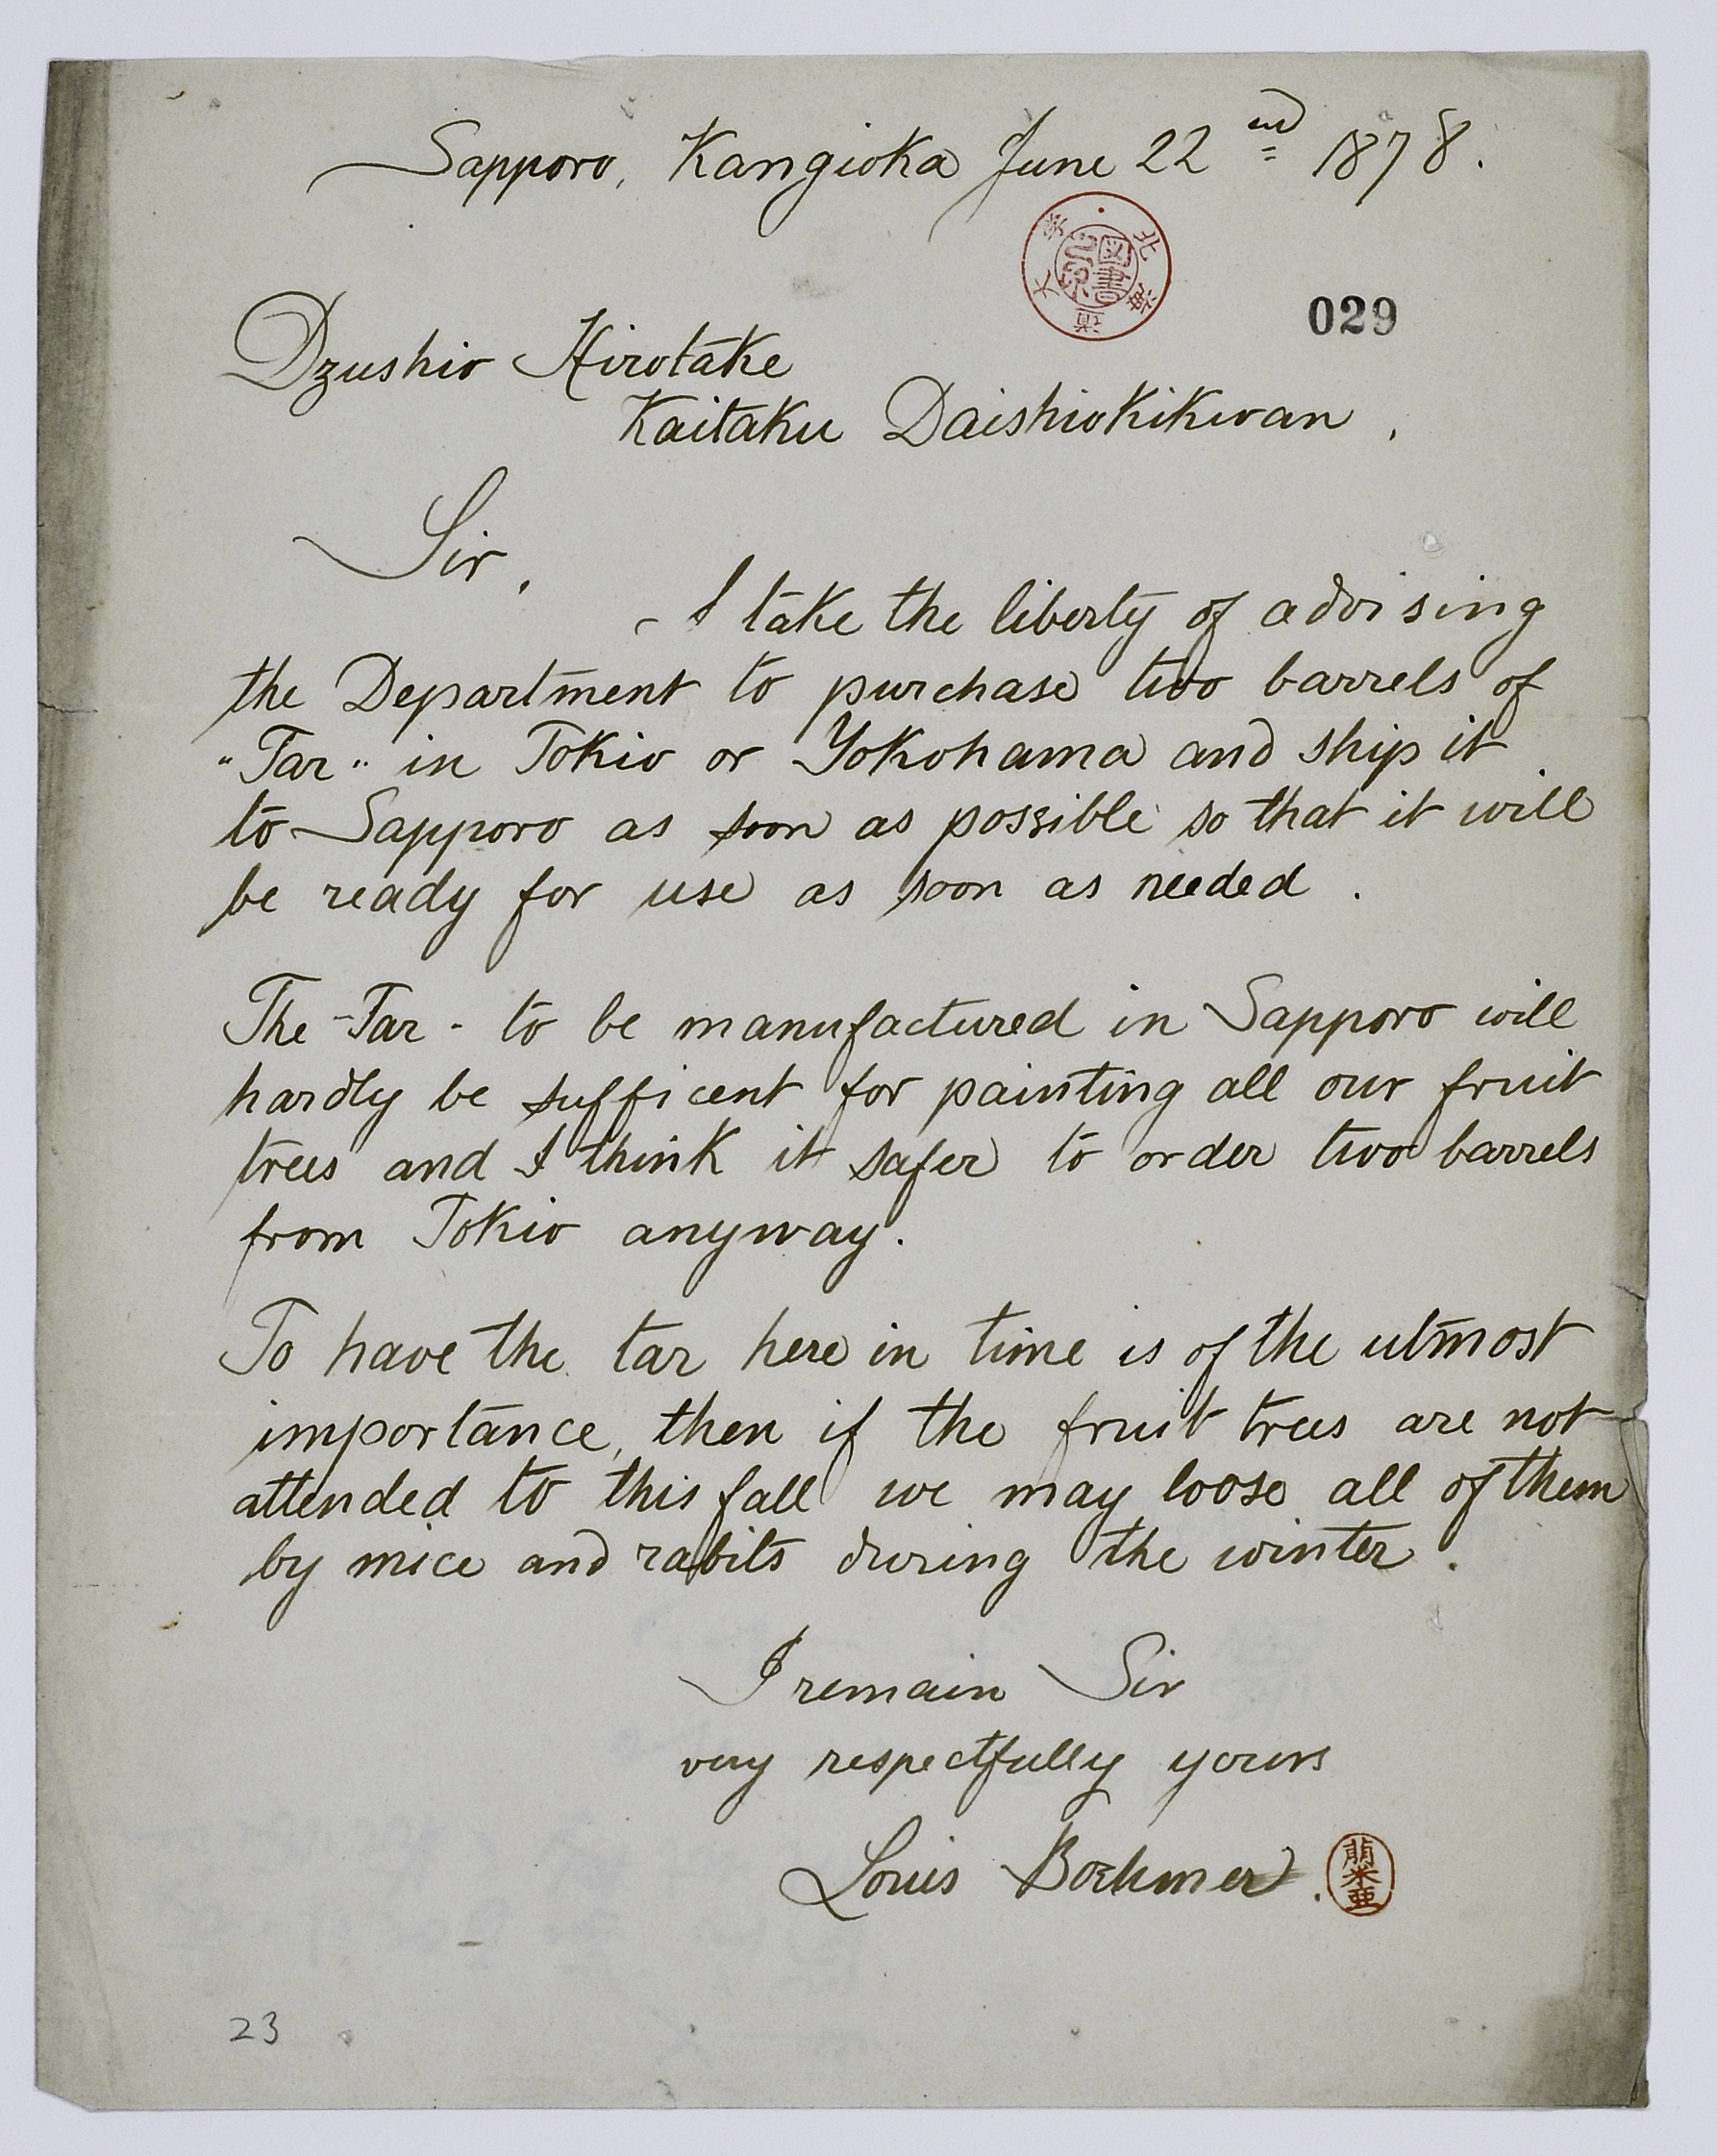 Sapporo, Kangioka June 22nd 1878.
北海道大学
図書
029
Dzushio Hirotake
Kaitaku Daishiokikwan,
Sir,
I take the liberty of advising
the Department to purchase two barrels of
"Tar" in Tokio or Yokohama and ship it
to Sapporo as soon as possible so that it will
be ready for use as soon as needed.
The -Tar- to be manufactured in Sapporo will
hardly be sufficent for painting all our fruit
trees and I think it safer to order two barrels
from Tokio anyway.
To have the tar here in time is of the utmost
importance, then if the fruit trees are not
attended to this fall we may loose all of them
by mice and rabits during the winter.
I remain Sir
very respectfully yours
Louis Boehmer.
米亜
23